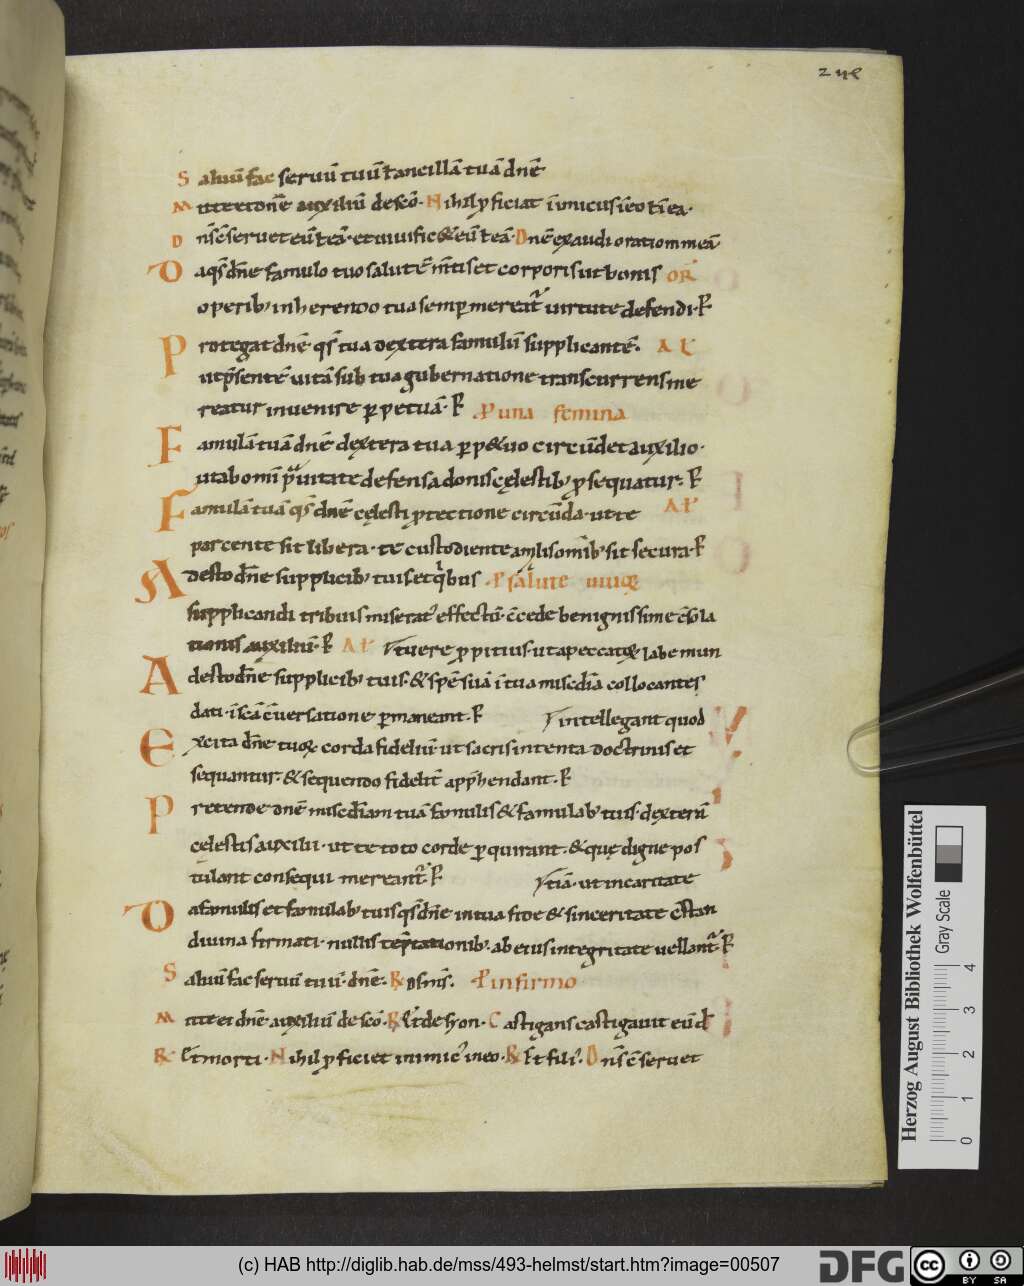 248
Saluū fac seruū tuū ł ancillā tuā dnē
Mitte ei dnē auxiliū de scō. Nihil ꝓficiat inimicus ī eo ł ī ea.
Dn̄s cōseruet eū ł eā. et uiuificet eū ł eā. Dnē exaudi orationem meā
Da qs̄ dnē famulo tuo salutē mtis et corporis ut bonis OR
operib; inherendo tua semp mereat᷑ uirtute defendi. P
Protegat dnē qs̄ tua dextera famulū supplicantē. AŁ
ut p̄sentē uitā sub tua gubernatione transcurrens me
reatur inuenire ꝑpetuā. P P una femina
Famulā tuā dnē dextera tua ꝑpetuo circūdet auxilio.
ut ab omī prauitate defensa donis cęlestib; ꝓsequatur. P
Famulā tuā qs̄ dnē cęlesti ꝓtectione circūda. ut te AŁ
parcente sit libera. te custodiente a malis omib; sit secura. P
Adesto dnē supplicib; tuis et quibus P salute uiuoꝝ
supplicandi tribuis miserat᷑ effectū. cc̄ede benignissime cōsola
tionis auxiliū. P AŁ tuere ꝓpitius. ut a peccatoꝝ labe mun
Adesto dnē supplicib; tuis. & spē suā ī tua miscdīa collocantes
dati. ī scā cōuersatione ꝑmaneant. P intellegant quod
Excita dnē tuoꝝ corda fideliū ut sacris intenta doctrinis et
sequantur. & sequendo fidelit̄ app̄hendant. P
Pretende dnē miscdīam tuā famulis & famulab; tuis. dexterā
cęlestis auxilii. ut te toto corde ꝑquirant. & quę digne pos
tulant consequi mereant᷑. P tiā. ut in caritate
Da famulis et famulab; tuis qs̄ dnē in tua fide & sinceritate cōstan
diuina firmati. nullis tēptationib; ab eius integritate uellant᷑. P
Saluū fac seruū tuū. dnē. R Ds ms̄. P infirmo
Mitte ei dnē auxiliū de scō. R Et de syon. Castigans castigauit eū d
R Et morti. Nihil ꝓficiet inimic᷒ in eo. R Et fili᷒. Dn̄s cōseruet
Herzog August Bibliothek Wolfenbüttel
Gray Scale
0 1 2 3 4
(c) HAB http://diglib.hab.de/mss/493-helmst/start.htm?image=00507
DFG
cc BY SA